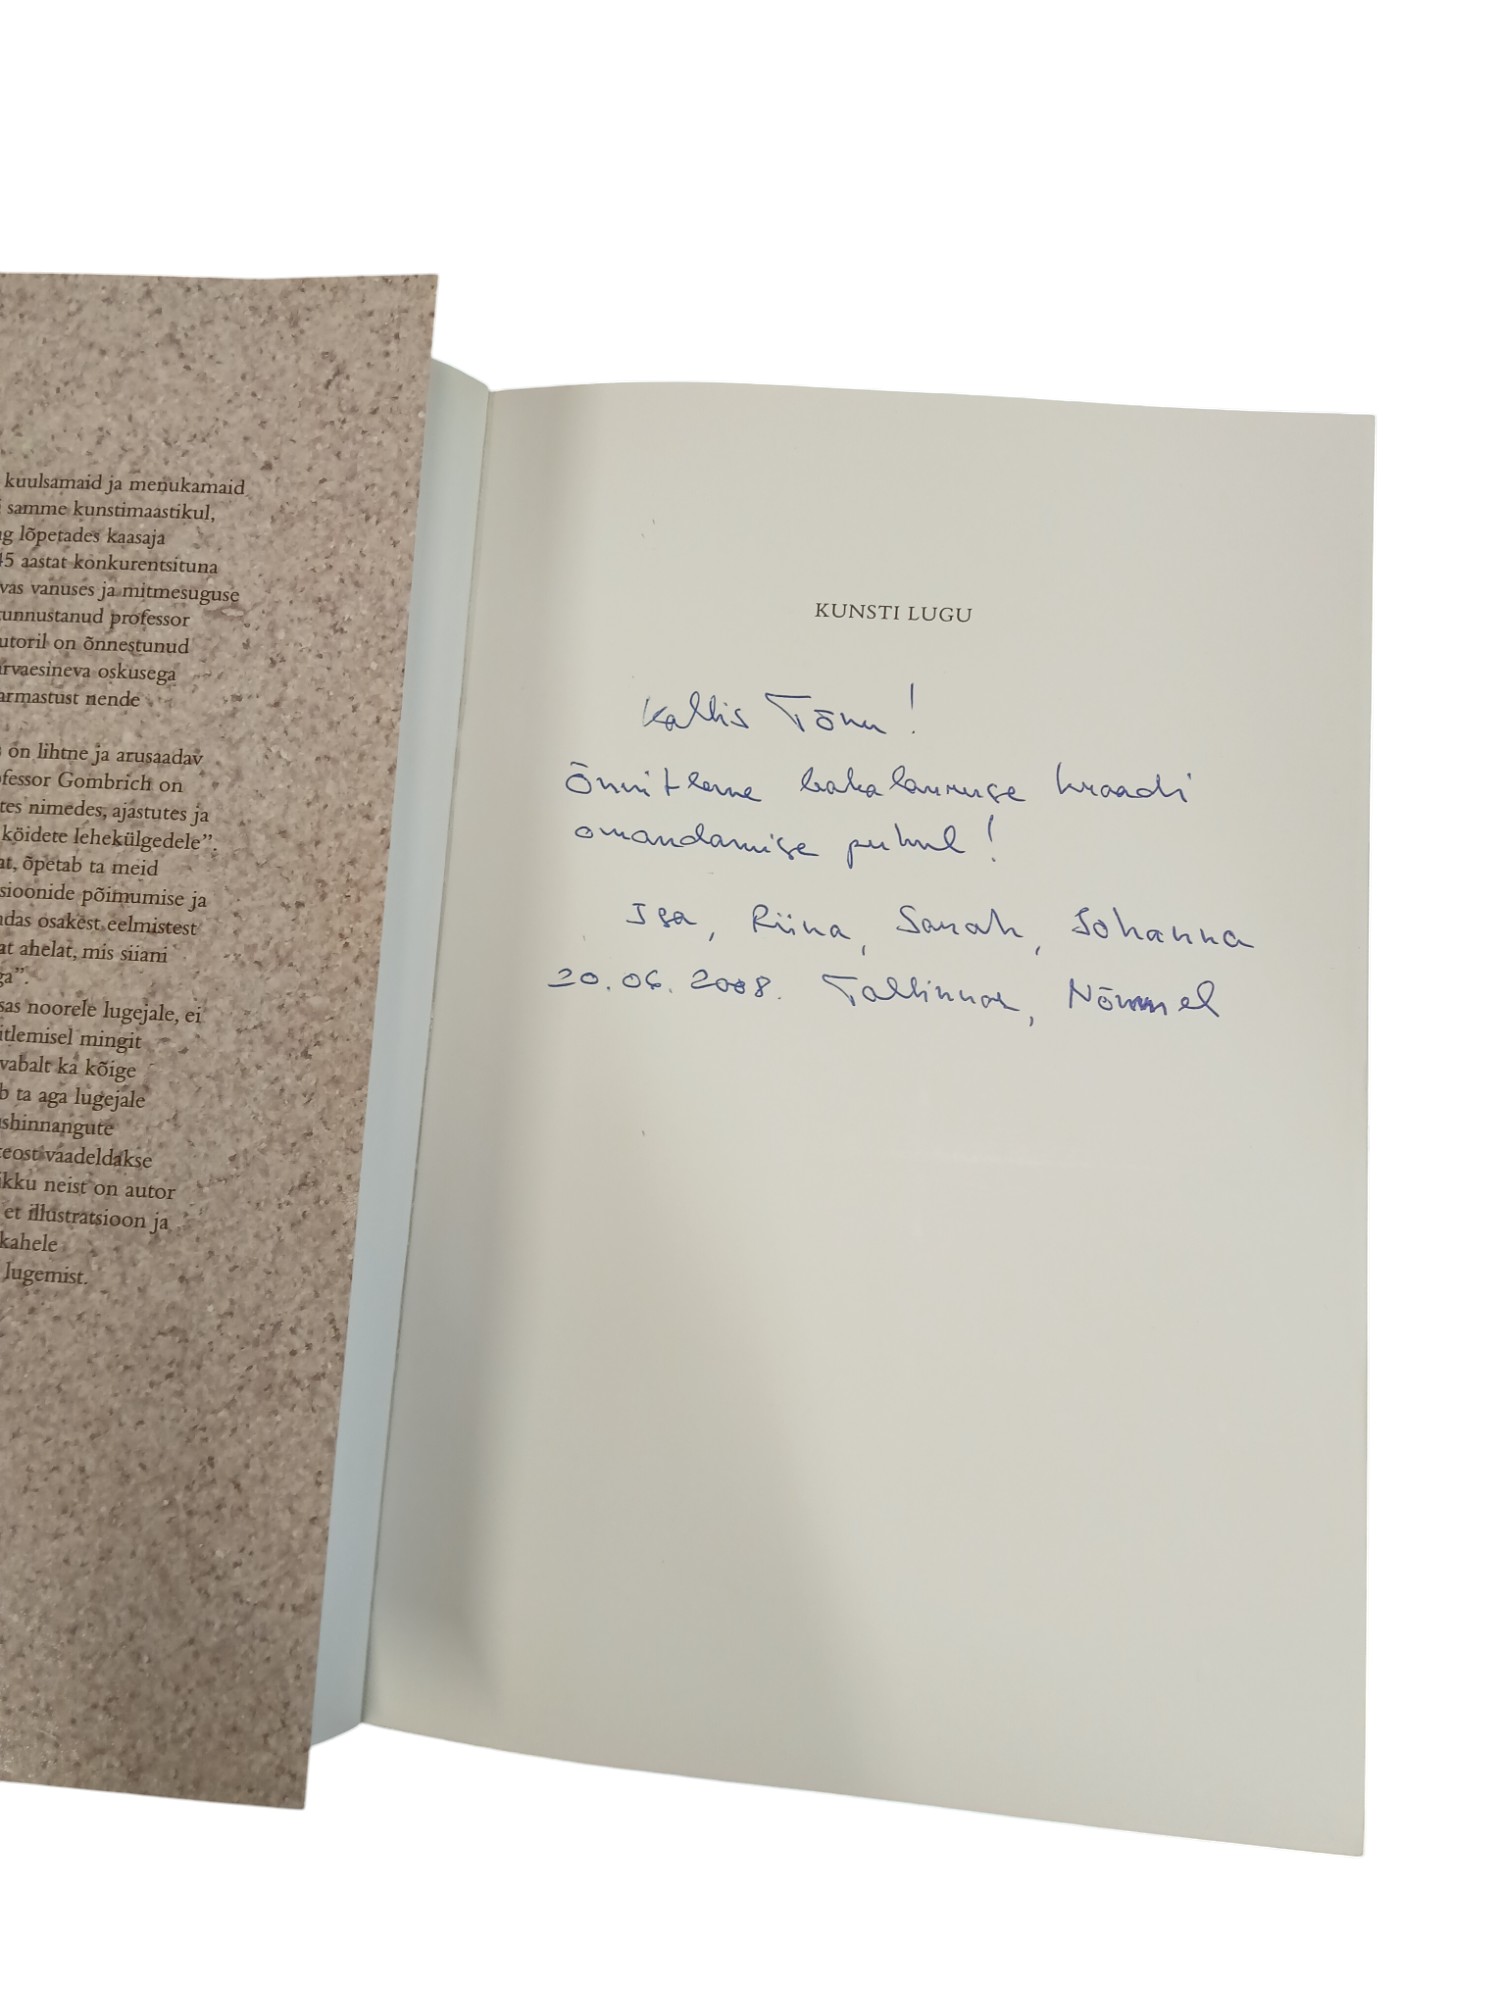 kuulsamaid ja menukamaid
samme kunstimaastikul,
lõpetades kaasaja
45 aastat konkurentsituna
vas vanuses ja mitmesuguse
tunnustanud professor
utoril on õnnestunud
arvaesineva oskusega
armastust nende
on lihtne ja arusaadav
ofessor Gombrich on
tes nimedes, ajastutes ja
köidete lehekülgedele”.
at, õpetab ta meid
sioonide põimumise ja
ndas osakest eelmistest
at ahelat, mis siiani
ga”.
sas noorele lugejale, ei
itlemisel mingit
vabalt ka kõige
b ta aga lugejale
shinnangute
teost vaadeldakse
ikku neist on autor
et illustratsioon ja
kahele
lugemist.
KUNSTI LUGU
Kallis Tõnu!
Õnnitleme bakalauruse kraadi
omandamise puhul!
Isa, Riina, Sarah, Johanna
20.06.2008. Tallinnas, Nõmmel